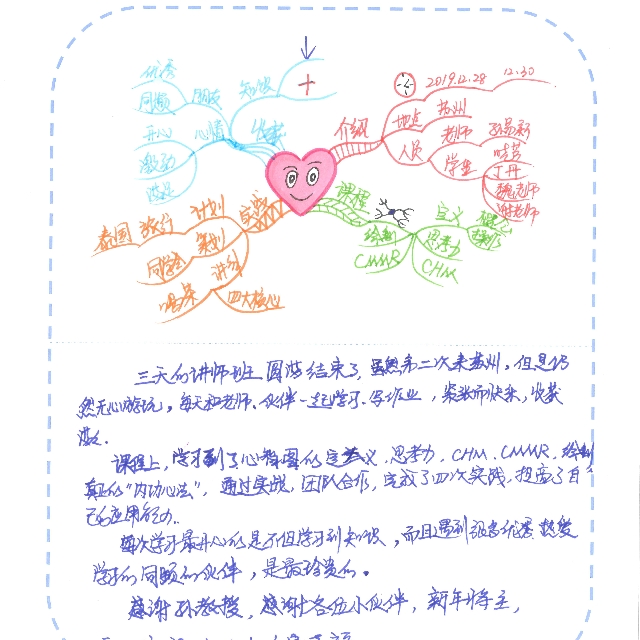 优秀
同频
朋友
知识
+
开心
心情
收获
激动
满足
介绍
2019.12.28
12.30
地点
苏州
人员
老师
孙易新
学生
晓芸
丁丹
魏老师
谢老师
课程
绘制
CMMR
定义
思考力
CHM
实践
计划
旅行
泰国
策划
同学会
讲解
四大核心
三天的讲师班圆满结束了,虽然第二次来苏州,但是仍
然无心游玩,每天和老师、伙伴一起学习、写作业,紧张而快乐,收获
满满.
课程上,学习到了心智图的定义、思考力、CHM、CMMR、绘制
真正的“内功心法”,通过实践,团队合作,完成了四次实践,提高了自
己的应用能力.
每次学习最开心的是不但学习到知识,而且遇到很多优秀、热爱
学习的同频的伙伴,是最珍贵的。
感谢孙教授,感谢各位小伙伴,新年将至,